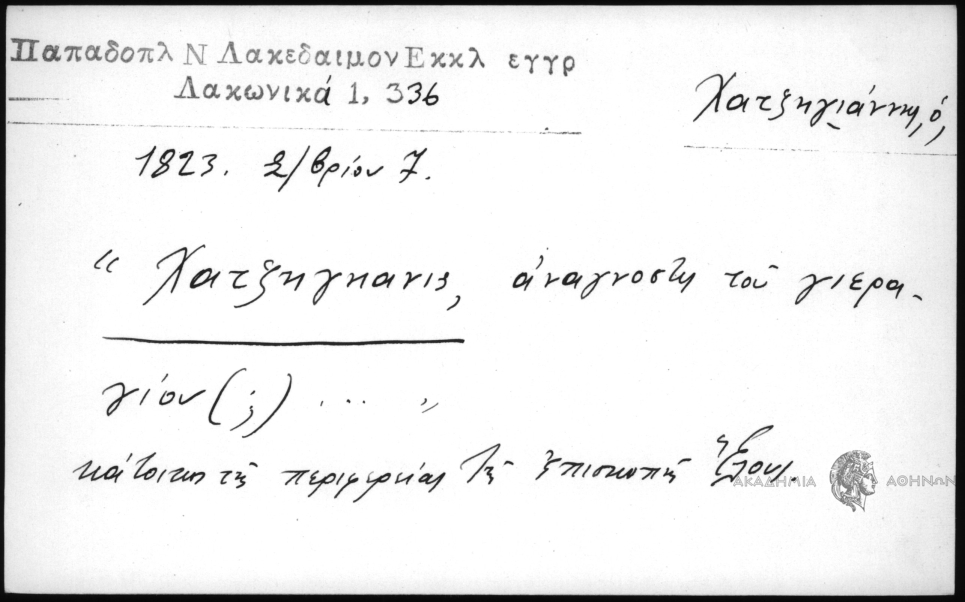 Παπαδοπλ Ν Λακεδαιμον Εκκλ εγγρ
Λακωνικά 1, 336
Χατζηγιάννης, ὁ,
1823. 2/βρίου 7.
“ Χατζηγιανις, ἀναγνοστης τοῦ γιερα-
γίου (;) ... ”
κάτοικος τῆς περιφερείας τῆς Ἐπισκοπῆς Ἕλους.
ΑΚΑΔΗΜΙΑ ΑΘΗΝΩΝ